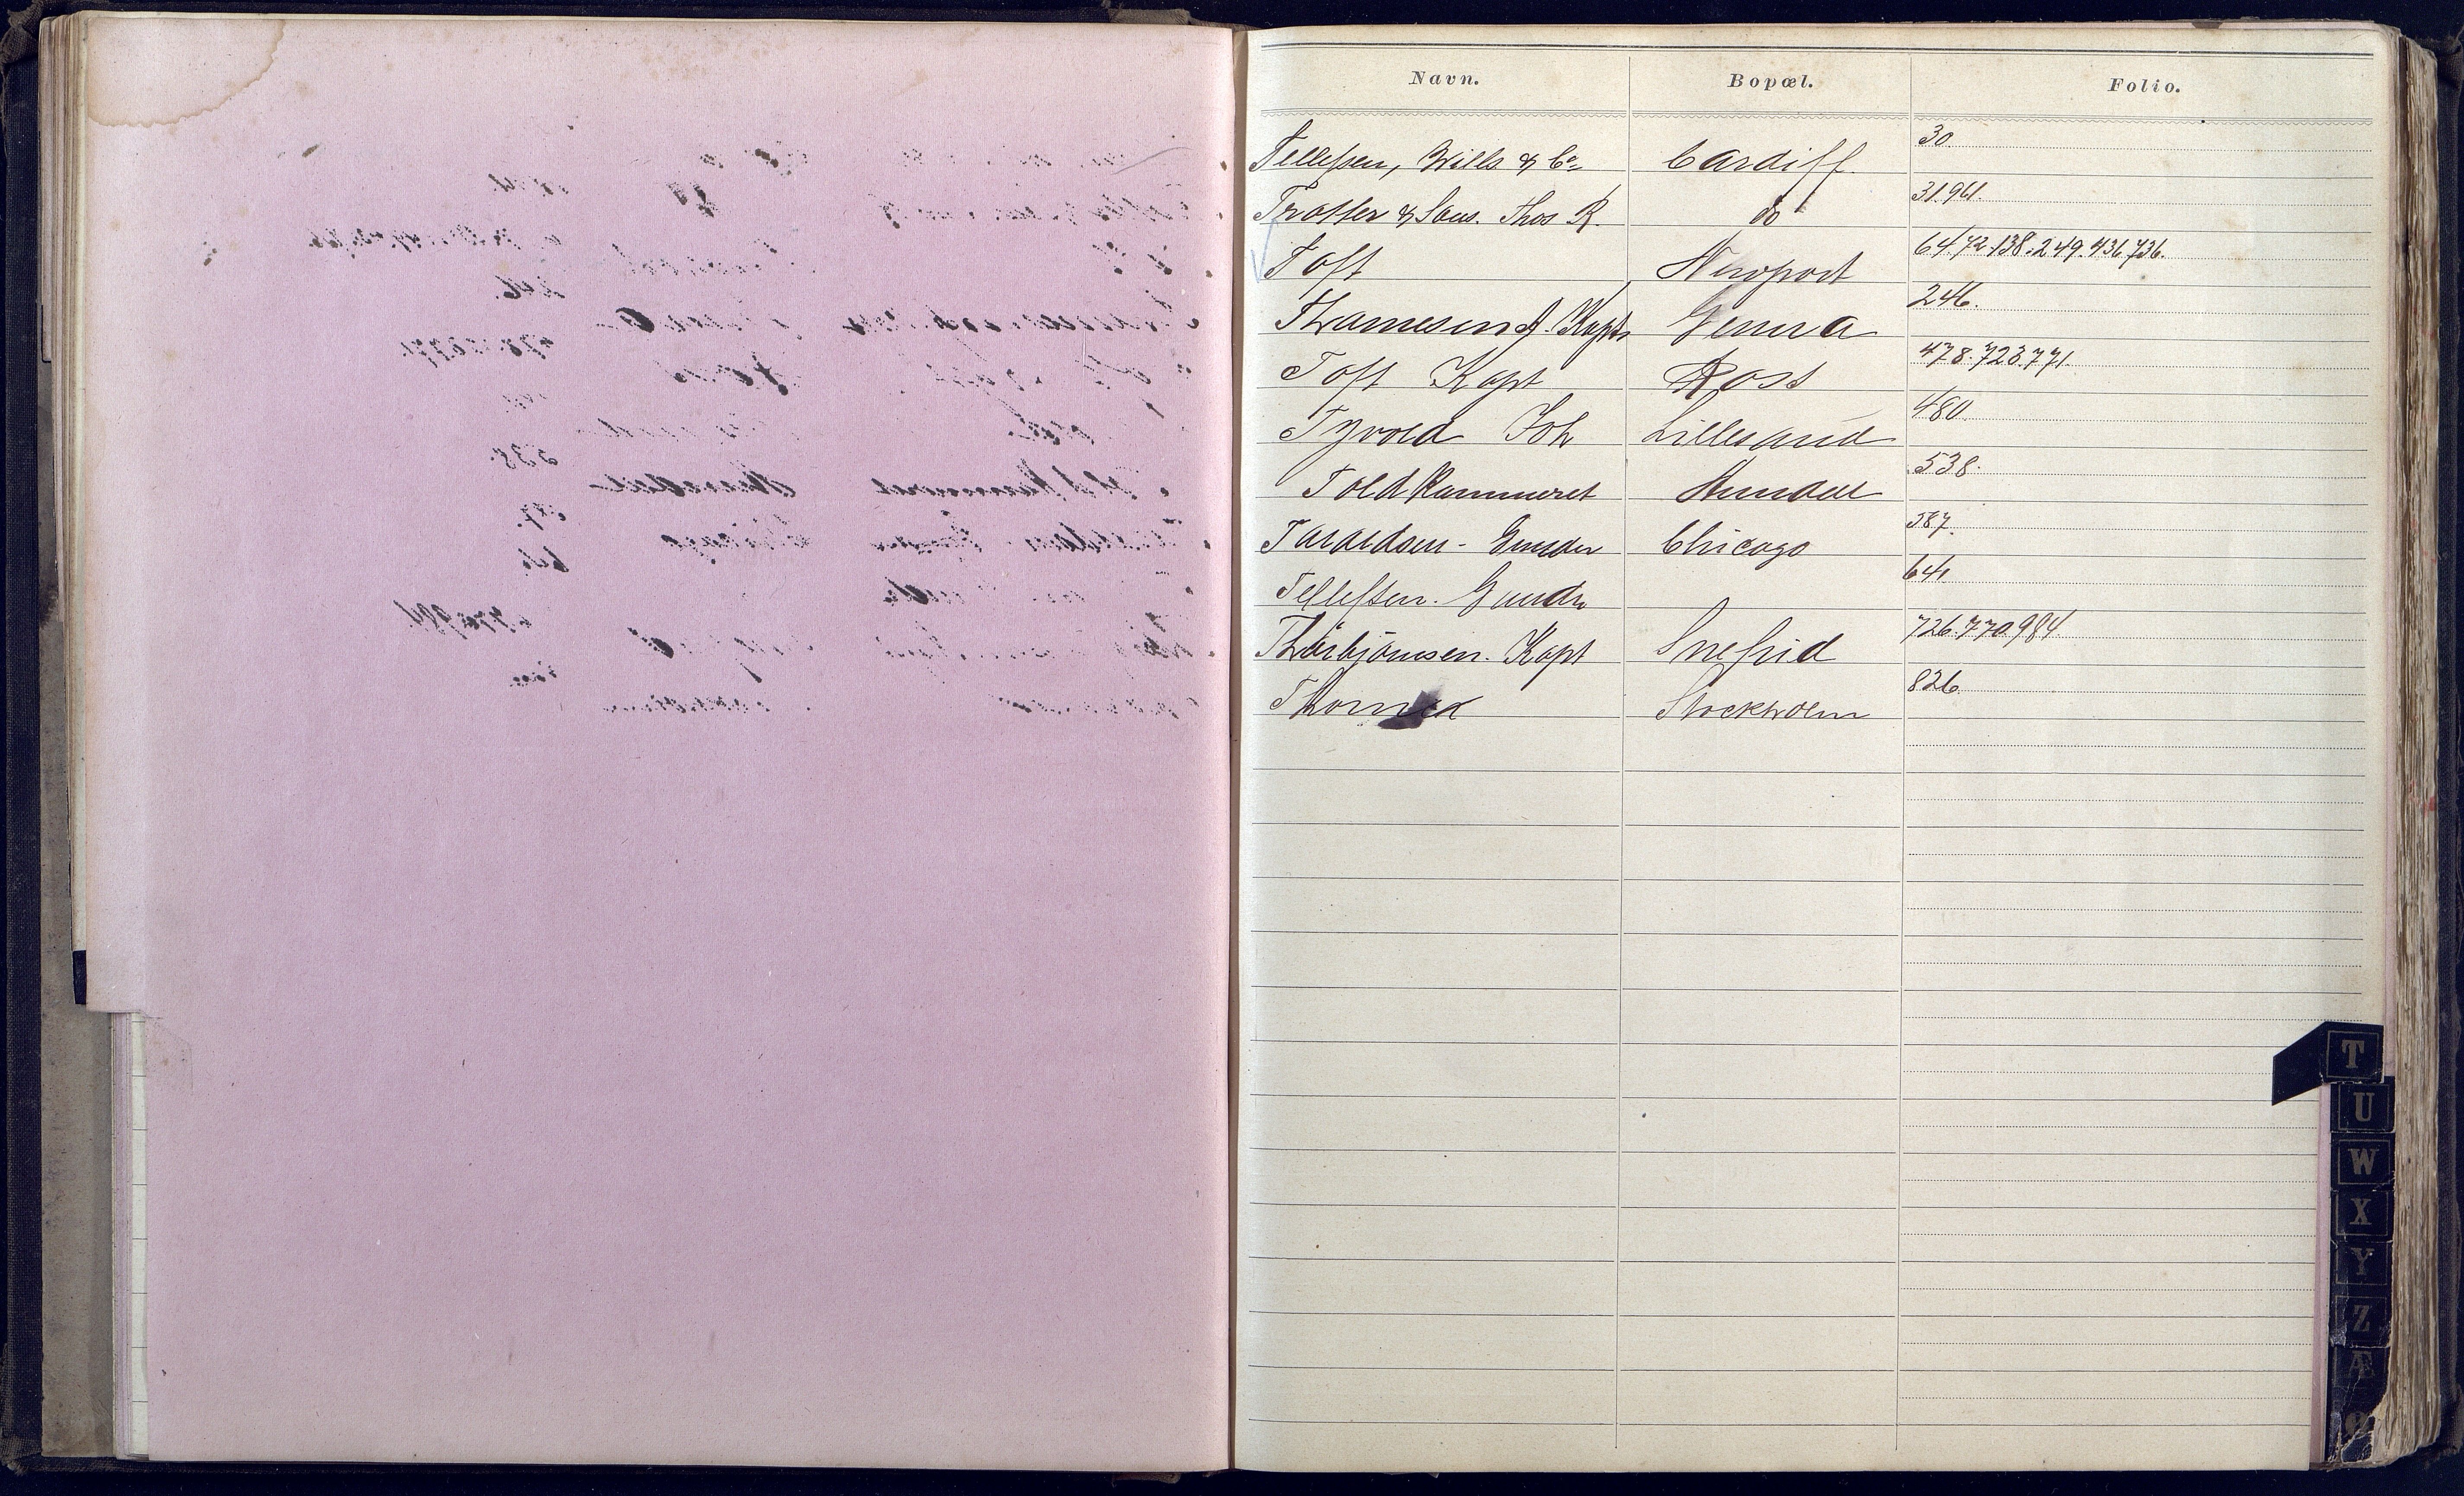 Navn. Bopæl. Folio.
Tellefsen, Wills & Co Cardiff. 30
Trotter & Sons. Thos R. do 31.961.
Toft Newport 64.72.138.249.436.736.
Thomesen J. Kapt Genua 246.
Toft Kapt Ross 478.723.771.
Tyvold Joh Lillesand 480.
Toldkammeret Arendal 538.
Taraldsen - Gunder Chicago 587.
Tellefsen. Gundr 641
Thorbjørnsen. Kapt Snefrid 726.770.984.
Stockholm 826.
T
U
W
X
Y
Z
Æ